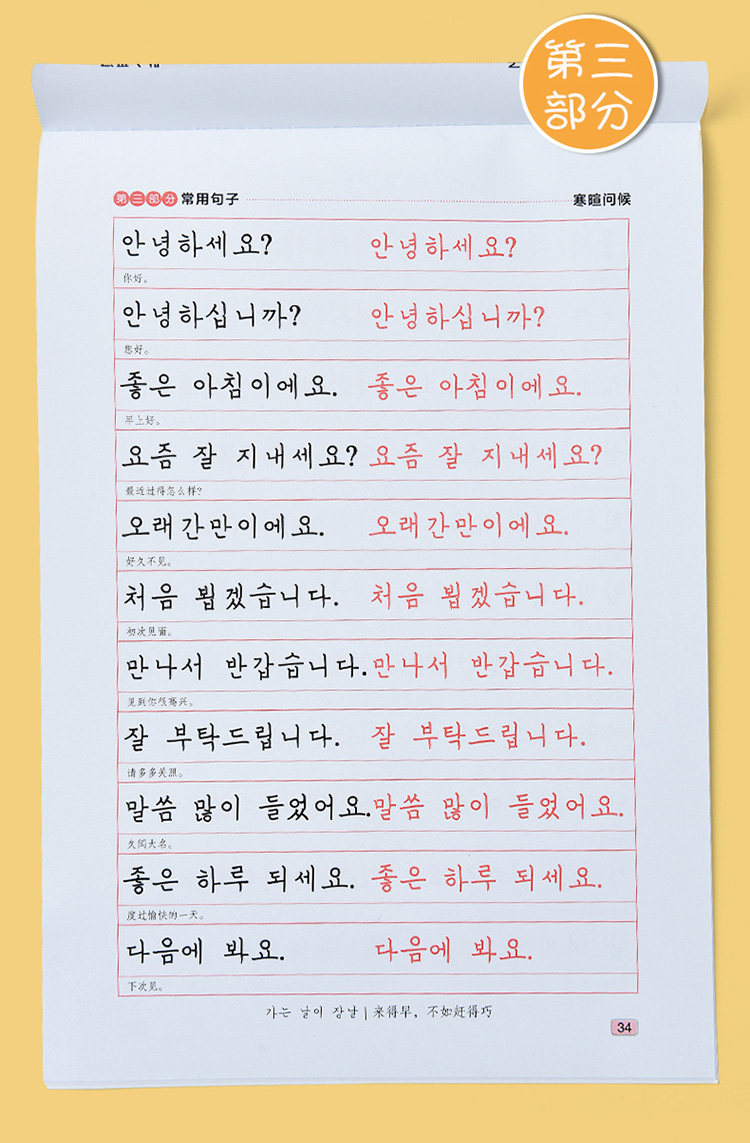 第三
部分
第三部分 常用句子 寒暄问候
안녕하세요? 안녕하세요?
你好。
안녕하십니까? 안녕하십니까?
您好。
좋은 아침이에요. 좋은 아침이에요.
早上好。
요즘 잘 지내세요? 요즘 잘 지내세요?
最近过得怎么样?
오래간만이에요. 오래간만이에요.
好久不见。
처음 뵙겠습니다. 처음 뵙겠습니다.
初次见面。
만나서 반갑습니다. 만나서 반갑습니다.
见到你很高兴。
잘 부탁드립니다. 잘 부탁드립니다.
请多多关照。
말씀 많이 들었어요. 말씀 많이 들었어요.
久闻大名。
좋은 하루 되세요. 좋은 하루 되세요.
度过愉快的一天。
다음에 봐요. 다음에 봐요.
下次见。
가는 날이 장날 | 来得早，不如赶得巧
34